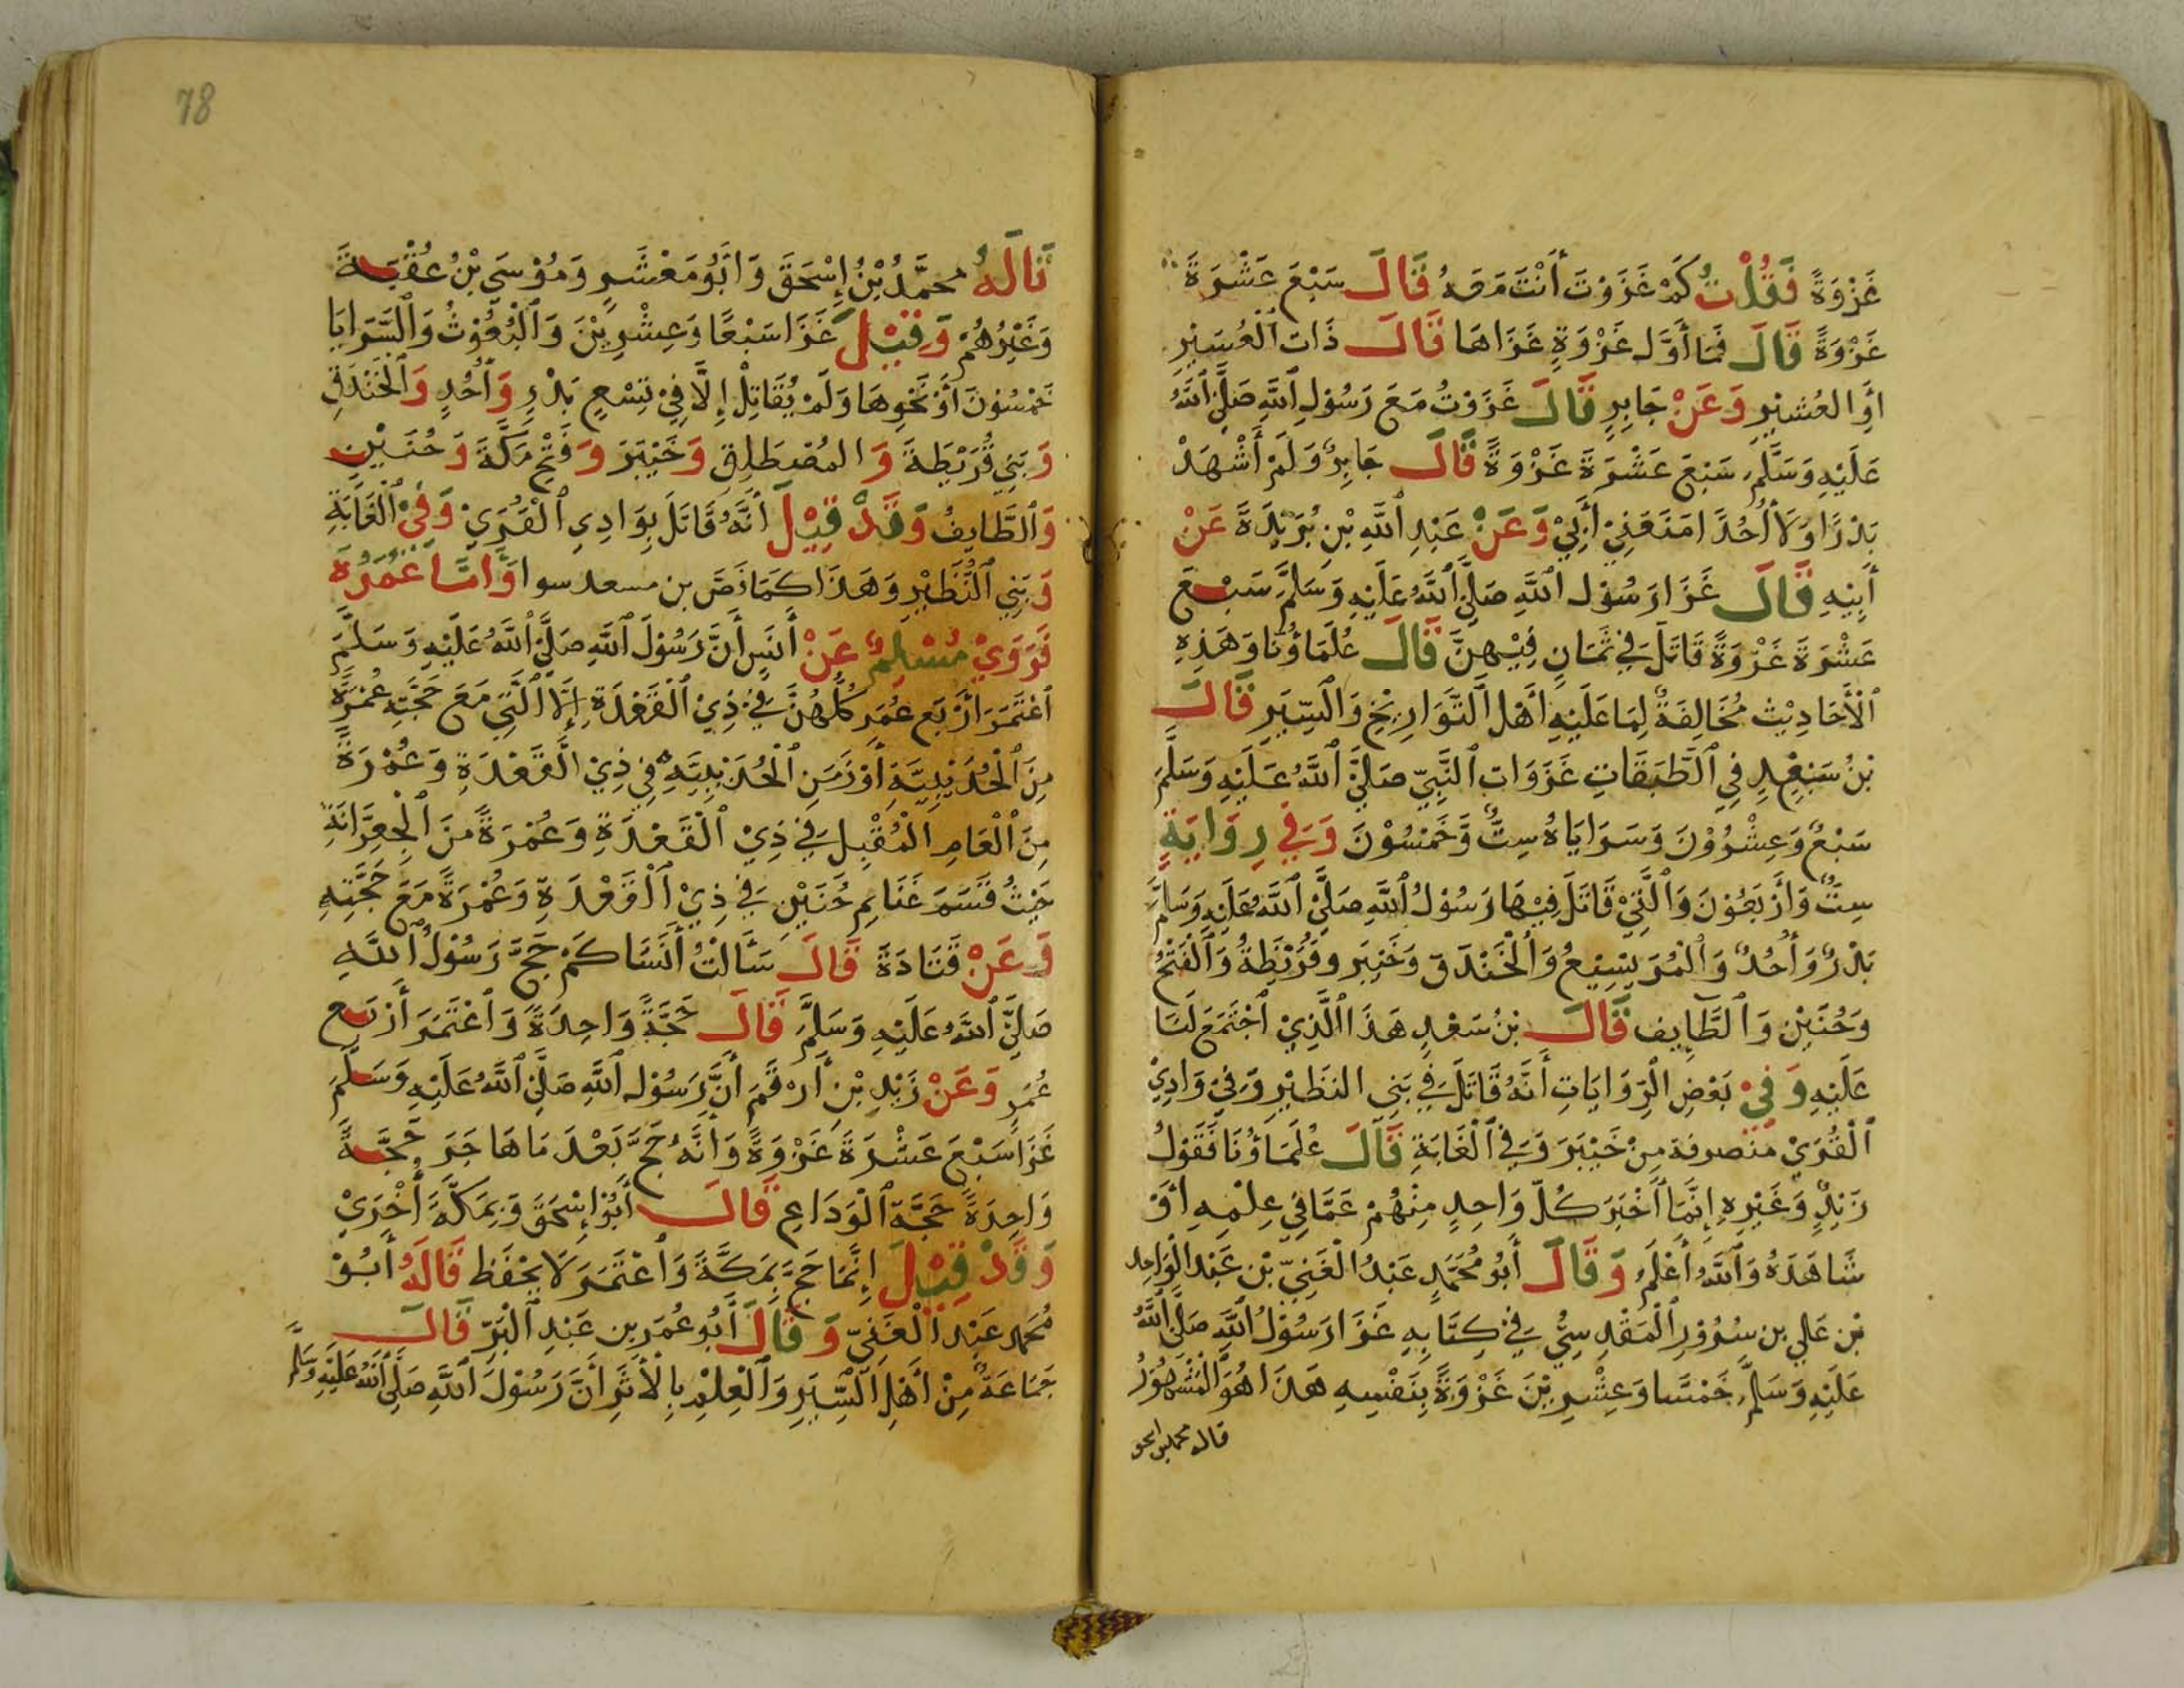 غَزْوَةً فَقُلْتُ كَمْ غَزَوْتَ أَنْتَ مَعَهُ قَالَ سَبْعَ عَشْرَةَ
غَزْوَةً قَالَ فَمَا أَوَّلَ غَزْوَةٍ غَزَاهَا قَالَ ذَاتَ الْعُسَيْرِ
أَوِ العُشَيْرِ وَعَنْ جَابِرٍ قَالَ غَزَوْتُ مَعَ رَسُوْلِ اللَّهِ صَلَّى اللَّهُ
عَلَيْهِ وَسَلَّمَ سَبْعَ عَشْرَةَ غَزْوَةً قَالَ جَابِرٌ وَلَمْ أَشْهَدْ
بَدْرًا وَلَا أُحُدًا مَنَعَنِيْ أَبِيْ وَعَنْ عَبْدِ اللَّهِ بْنِ بُرَيْدَةَ عَنْ
أَبِيْهِ قَالَ غَزَا رَسُوْلُ اللَّهِ صَلَّى اللَّهُ عَلَيْهِ وَسَلَّمَ سَبْعَ
عَشْرَةَ غَزْوَةً قَاتَلَ فِيْ ثَمَانٍ فِيْهِنَّ قَالَ عُلَمَاؤُنَا وَهَذِهِ
الْأَحَادِيْثُ مُخَالِفَةٌ لِمَا عَلَيْهِ أَهْلُ التَّوَارِيْخِ وَالسِّيَرِ قَالَ
بْنُ سَعِيْدٍ فِي الطَّبَقَاتِ غَزَوَاتِ النَّبِيِّ صَلَّى اللَّهُ عَلَيْهِ وَسَلَّمَ
سَبْعٌ وَعِشْرُوْنَ وَسَرَايَاهُ سِتٌّ وَّخَمْسُوْنَ وَفِي رِوَايَةٍ
سِتٌّ وَأَرْبَعُوْنَ وَالَّتِيْ قَاتَلَ فِيْهَا رَسُوْلُ اللَّهِ صَلَّى اللَّهُ عَلَيْهِ وَسَلَّمَ
بَدْرٌ وَأُحُدٌ وَالْمُرَيْسِيْعُ وَالْخَنْدَقَ وَخَيْبَرَ وَقُرَيْظَةُ وَالْفَتْحُ
وَحُنَيْنِ وَالطَّايِفِ قَالَ بْنُ سَعْدٍ هَذَا الَّذِيْ اجْتَمَعَ لَنَا
عَلَيْهِ وَفِيْ بَعْضِ الرِّوَايَاتِ أَنَّهُ قَاتَلَ فِيْ بَنِي النَّظِيْرِ وَفِيْ وَادِيْ
الْقُرَىْ مُنْصرفة مِنْ خَيْبَرَ وَفِي الْغَابَةِ قَالَ عُلَمَاؤُنَا فَقَوْلُ
زَيْدٍ وَغَيْرِهِ إِنَّمَا أَخْبَرَ كُلُّ وَاحِدٍ مِنْهُمْ عَمَّا فِيْ عِلْمِهِ أَوْ
شَاهَدَهُ وَاللَّهُ أَعْلَمُ وَقَالَ أَبُو مُحَمَّدٍ عَبْدُ الْغَنِيِّ بْنِ عَبْدِ الْوَاحِدِ
بْنِ عَلِي بن سُرُوْرٍ الْمَقْدِسِيُّ فِيْ كِتَابِهِ غَزَا رَسُوْلُ اللَّهِ صَلَّى اللَّهُ
عَلَيْهِ وَسَلَّمَ خَمْسًا وَعِشْرِيْنَ غَزْوَةً بِنَفْسِهِ هَذَا هُوَ الْمَشْهُوْرُ
قاله محمد بن اسحق
78
قَالَهُ مُحَمَّدُ بْنُ إِسْحَقَ وَأَبُو مَعْشَرٍ وَمُوْسَى بْنُ عُقْبَةَ
وَغَيْرُهُمْ وَقِيْلَ غَزَا سَبْعًا وَعِشْرِيْنَ وَالْبُعُوْثُ وَالسَّرَايَا
خَمْسُوْنَ أَوْ نَحْوِهَا وَلَمْ يُقَاتِلْ إِلَّا فِيْ تِسْعٍ بَدْرٍ وَأُحُدٍ وَالْخَنْدَقِ
وَبَنِي قُرَيْظَةَ وَالمُصْطَلِقِ وَخَيْبَرَ وَفَتْحِ مَكَّةَ وَحُنَيْنٍ
وَالطَّايِفُ وَقَدْ قِيْلَ أَنَّهُ قَاتَلَ بِوَادِي الْقُرَىْ وَفِيْ الْغَابَةِ
وَبَنِي النَّظِيْرِ وَهَذَا كَمَا نَصَّ بن مسعد سوا وَأَمَّا عُمَرُهُ
فَرَوَىْ مُسْلِمٌ عَنْ أَنَسٍ أَنَّ رَسُوْلَ اللَّهِ صَلَّى اللَّهُ عَلَيْهِ وَسَلَّمَ
اعْتَمَرَ أَرْبَع عُمَرٍ كُلُّهُنَّ فِيْ ذِيْ الْقَعْدَةِ إِلَّا الَّتِي مَعَ حَجَّتِهِ عُمْرَةً
مِنَ الْحُدَيْبِيَّةِ أَوْ زَمَنِ الْحُدَيْبِيَّةِ فِيْ ذِيْ الْقَعْدَةِ وَعُمْرَةً
مِنَ الْعَامِ الْمُقْبِلِ فِيْ ذِيْ الْقَعْدَةِ وَعُمْرَةً مِنَ الْجِعِرَّانَةِ
حَيْثُ قَسَمَ غَنَايِمِ حُنَيْنٍ فِيْ ذِيْ الْقَعْدَةِ وَعُمْرَةً مَعَ حَجَّتِهِ
وَعَنْ قَتَادَةَ قَالَ سَأَلْتُ أَنَسًا كَمْ حَجَّ رَسُوْلُ اللَّهِ
صَلَّى اللَّهُ عَلَيْهِ وَسَلَّمَ قَالَ حَجَّةً وَاحِدَةً وَاعْتَمَرَ أَرْبَع
عُمَرٍ وَعَنْ زَيْدِ بْنِ أَرْقَمَ أَنَّ رَسُوْلَ اللَّهِ صَلَّى اللَّهُ عَلَيْهِ وَسَلَّمَ
غَزَا سَبْعَ عَشْرَةَ غَزْوَةً وَأَنَّهُ حَجَّ بَعْدَ مَا هَاجَرَ حَجَّةً
وَاحِدَةً حَجَّةَ الْوَدَاعِ قَالَ أَبُوْ إِسْحَقَ وَبِمَكَّةَ أُخْرَىْ
وَقَدْ قِيْلَ إِنَّمَا حَجَّ بِمَكَّةَ وَاعْتَمَرَ لَا يُحْفَظ قَالَهُ أَبُوْ
مُحَمد عَبْد الْغَنِيّ وَقَالَ أَبُو عُمَرَ بن عَبْدِ الْبَرِّ قَالَ
جَمَاعَةٌ مِنْ أَهْلِ السِّيَرِ وَالْعِلْمِ بِالْأَثَرِ أَنَّ رَسُوْلَ اللَّهِ صَلَّى اللَّهُ عَلَيْهِ وَسَلَّمَ